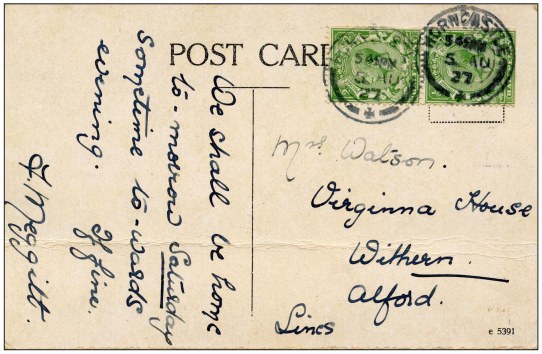 POST CARD
HORNCASTLE
5 45 PM
5 AU
27
5 45 PM
5 AU
27
We shall be home
to-morrow Saturday
sometime to-wards
evening. If fine.
F. Meggitt.
Mrs Watson.
Virginna House
Withern.
Alford.
Lincs
e 5391